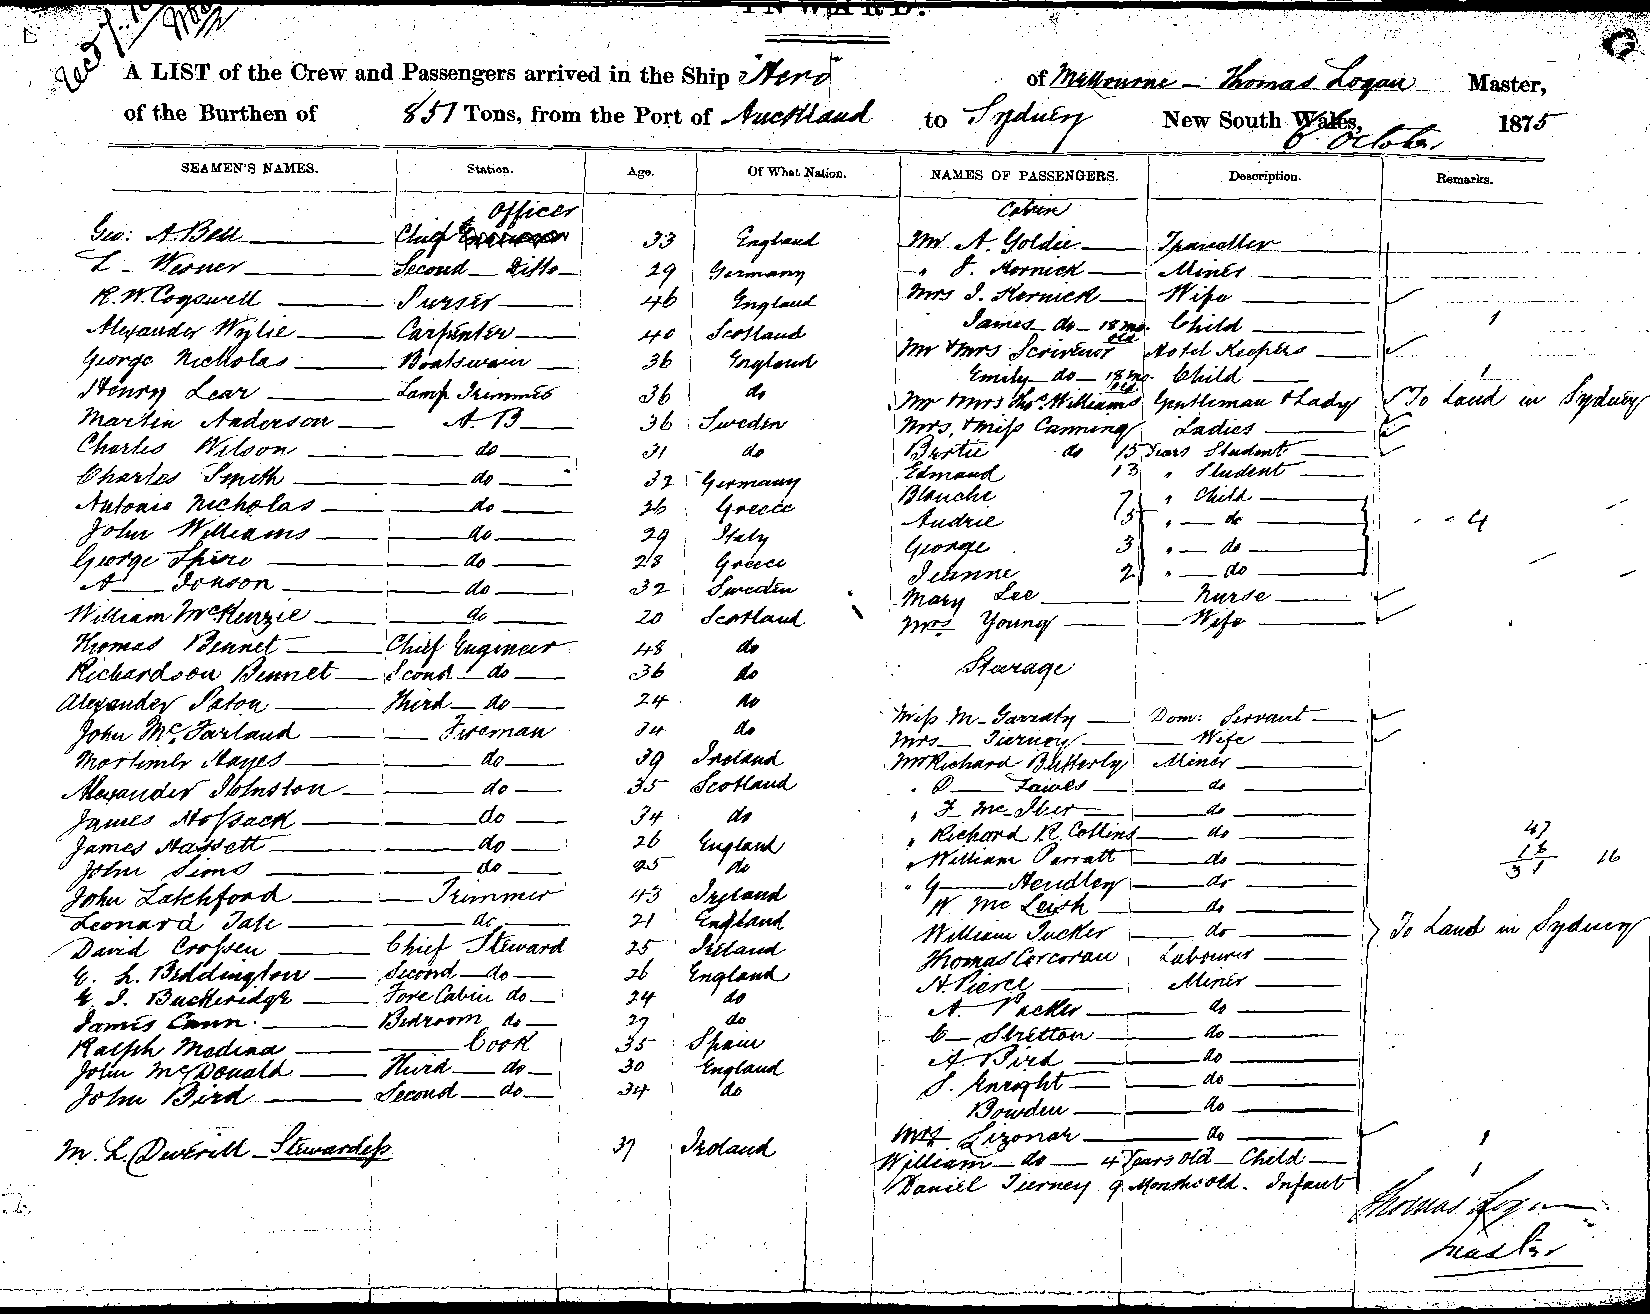 INWARD.
A LIST of the Crew and Passengers arrived in the Ship "Hero" of Melbourne – Thomas Logan Master,
of the Burthen of 851 Tons, from the Port of Auckland to Sydney New South Wales, 6 October 1875
SEAMEN'S NAMES. Station. Age. Of What Nation.
Geo: A. Bell Chief Officer 33 England
L – Werner Second – Ditto 29 Germany
R. W. Cogswell Purser 46 England
Alexander Wylie Carpenter 40 Scotland
George Nicholas Boatswain 36 England
Henry Lear Lamp Trimmer 36 do
Martin Anderson A. B 36 Sweden
Charles Wilson do 31 do
Charles Smith do 32 Germany
Antonio Nicholas do 36 Greece
John Williams do 29 Italy
George Spiro do 28 Greece
A — Jonson do 32 Sweden
William McKenzie do 20 Scotland
Thomas Bennet Chief Engineer 48 do
Richardson Bennet Second do 36 do
Alexander Paton Third do 24 do
John McFarland Fireman 34 do
Mortimer Hayes do 39 Ireland
Alexander Johnston do 35 Scotland
James Hossack do 34 do
James Hassett do 26 England
John Sims do 25 do
John Latchford Trimmer 43 Ireland
Leonard Tate do 21 England
David Crossen Chief Steward 25 Ireland
E. L. Beddington Second do 26 England
E. J. Buckeridge Fore Cabin do 24 do
James Cann. Bedroom do 27 do
Ralph Medina Cook 35 Spain
John McDonald Third do 30 England
John Bird Second do 34 do
M. L. Deverill Stewardess 37 Ireland
NAMES OF PASSENGERS. Description. Remarks.
Cabin
Mr A. Goldie Traveller
" J. Hornick Miner
Mrs J. Hornick Wife
James do 18 mo. old Child 1
Mr & Mrs Scrivenor Hotel Keepers
Emily do 18 mo. old Child 1
Mr & Mrs Thos. Williams Gentleman & Lady To Land in Sydney
Mrs, & Miss Canning Ladies
Bertie do 15 Years Student
Edmund 13 " Student
Blanche 7 " Child
Audrie 5 " do 4
George 3 " do
Jeanne 2 " do
Mary Lee Nurse
Mrs Young Wife
Steerage
Miss M. Garraty Dom: Servant
Mrs Tierney Wife
Mr Richard Butterly Miner
" P — Fawes do
" F. do
" Richard R. Collins do
" William Parratt do
" G — Hendley do
W McLeish do
William Tucker do To Land in Sydney
Thomas Corcoran Labourer
H. Pierce Miner
A. Packer do
C – Stretton do
A. Bird do
J. Enright do
Bowden do
Mrs Lizonar do 1
William do 4 Years old Child 1
Daniel Tierney 9 Months old. Infant
47
16
Thomas Logan
Master